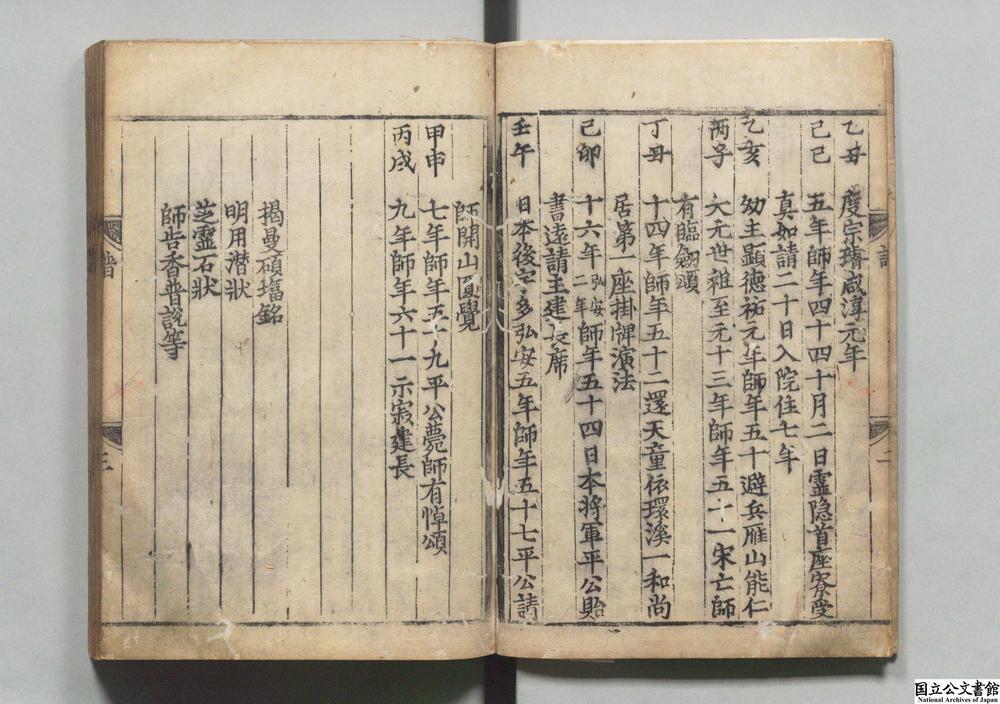 譜
二
乙丑 度宗璿咸淳元年
己巳 五年師年四十四十月二日靈隠首座寮受
真如請二十日入院住七年
乙亥 幼主顕德祐元年師年五十避兵雁山能仁
丙子 大元世祖至元十三年師年五十一宋亡師
有臨劒頌
丁丑 十四年師年五十二還天童依環溪一和尚
居第一座掛牌演法
己卯 十六年弘安二年師年五十四日本將軍平公貽
書遠請主建長席
壬午 日本後宇多弘安五年師年五十七平公請
師開山圓覺
甲申 七年師年五十九平公薨師有悼頌
丙戌 九年師年六十一示寂建長
揭曼碩塔銘
明用潜状
芝霊石状
師告香普説等
譜
三
国立公文書館
National Archives of Japan